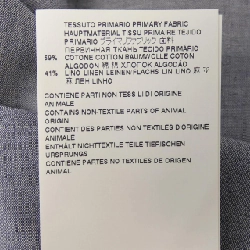 TESSUTO PRIMARIO PRIMARY FABRIC
HAUPTMATERIAL TISSU PRIMAIRE TEJIDO
PRIMARIO プライマリファブリック 面料
ПЕРВИЧНАЯ ТКАНЬ TECIDO PRIMARIO
59% COTONE COTTON BAUMWOLLE COTON
ALGODON 綿 棉 ХЛОПОК ALGODÃO
41% LINO LINEN LEINEN FLACHS LIN LINO 麻
ЛЕН LINHO
CONTIENE PARTI NON TESSILI DI ORIGINE
ANIMALE
CONTAINS NON-TEXTILE PARTS OF ANIMAL
ORIGIN
CONTIENT DES PARTIES NON TEXTILES D'ORIGINE
ANIMALE
ENTHÄLT NICHTTEXTILE TEILE TIERISCHEN
URSPRUNGS
CONTIENE PARTES NO TEXTILES DE ORIGEN
ANIMAL